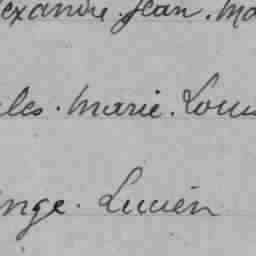 exandre. Jean. Ma
les. Marie. Loui
nge. Lucien